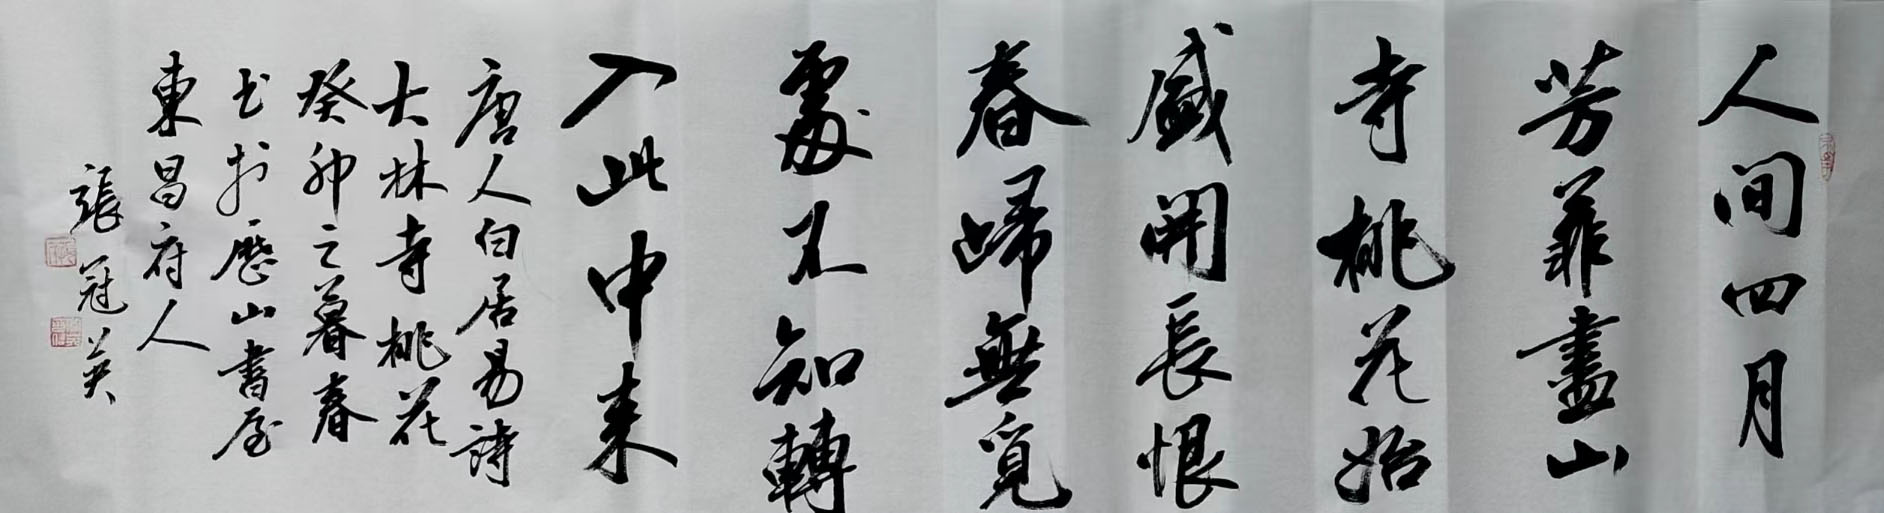 人间四月
芳菲盡山
寺桃花始
盛開長恨
春歸無覓
處不知轉
入此中来
唐人白居易詩
大林寺桃花
癸卯之暮春
书於歷山書屋
東昌府人
張冠英